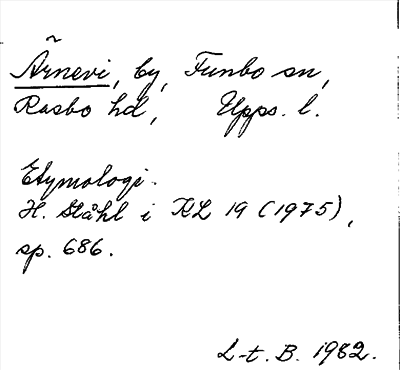 Årnevi, by, Funbo sn,
Rasbo hd, Upps. l.
Etymologi.
H. Ståhl i KL 19 (1975),
sp. 686.
L-t. B. 1982.